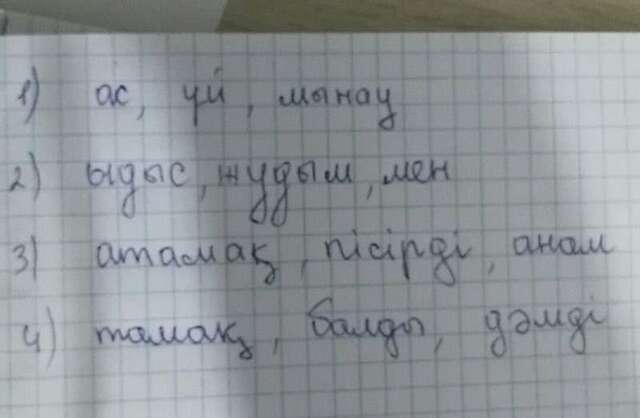 1) ас, үй, мынау
2) ыдыс, жудым, мен
3) атамақ, пісірді, анам
4) тамақ, балды, дәмді